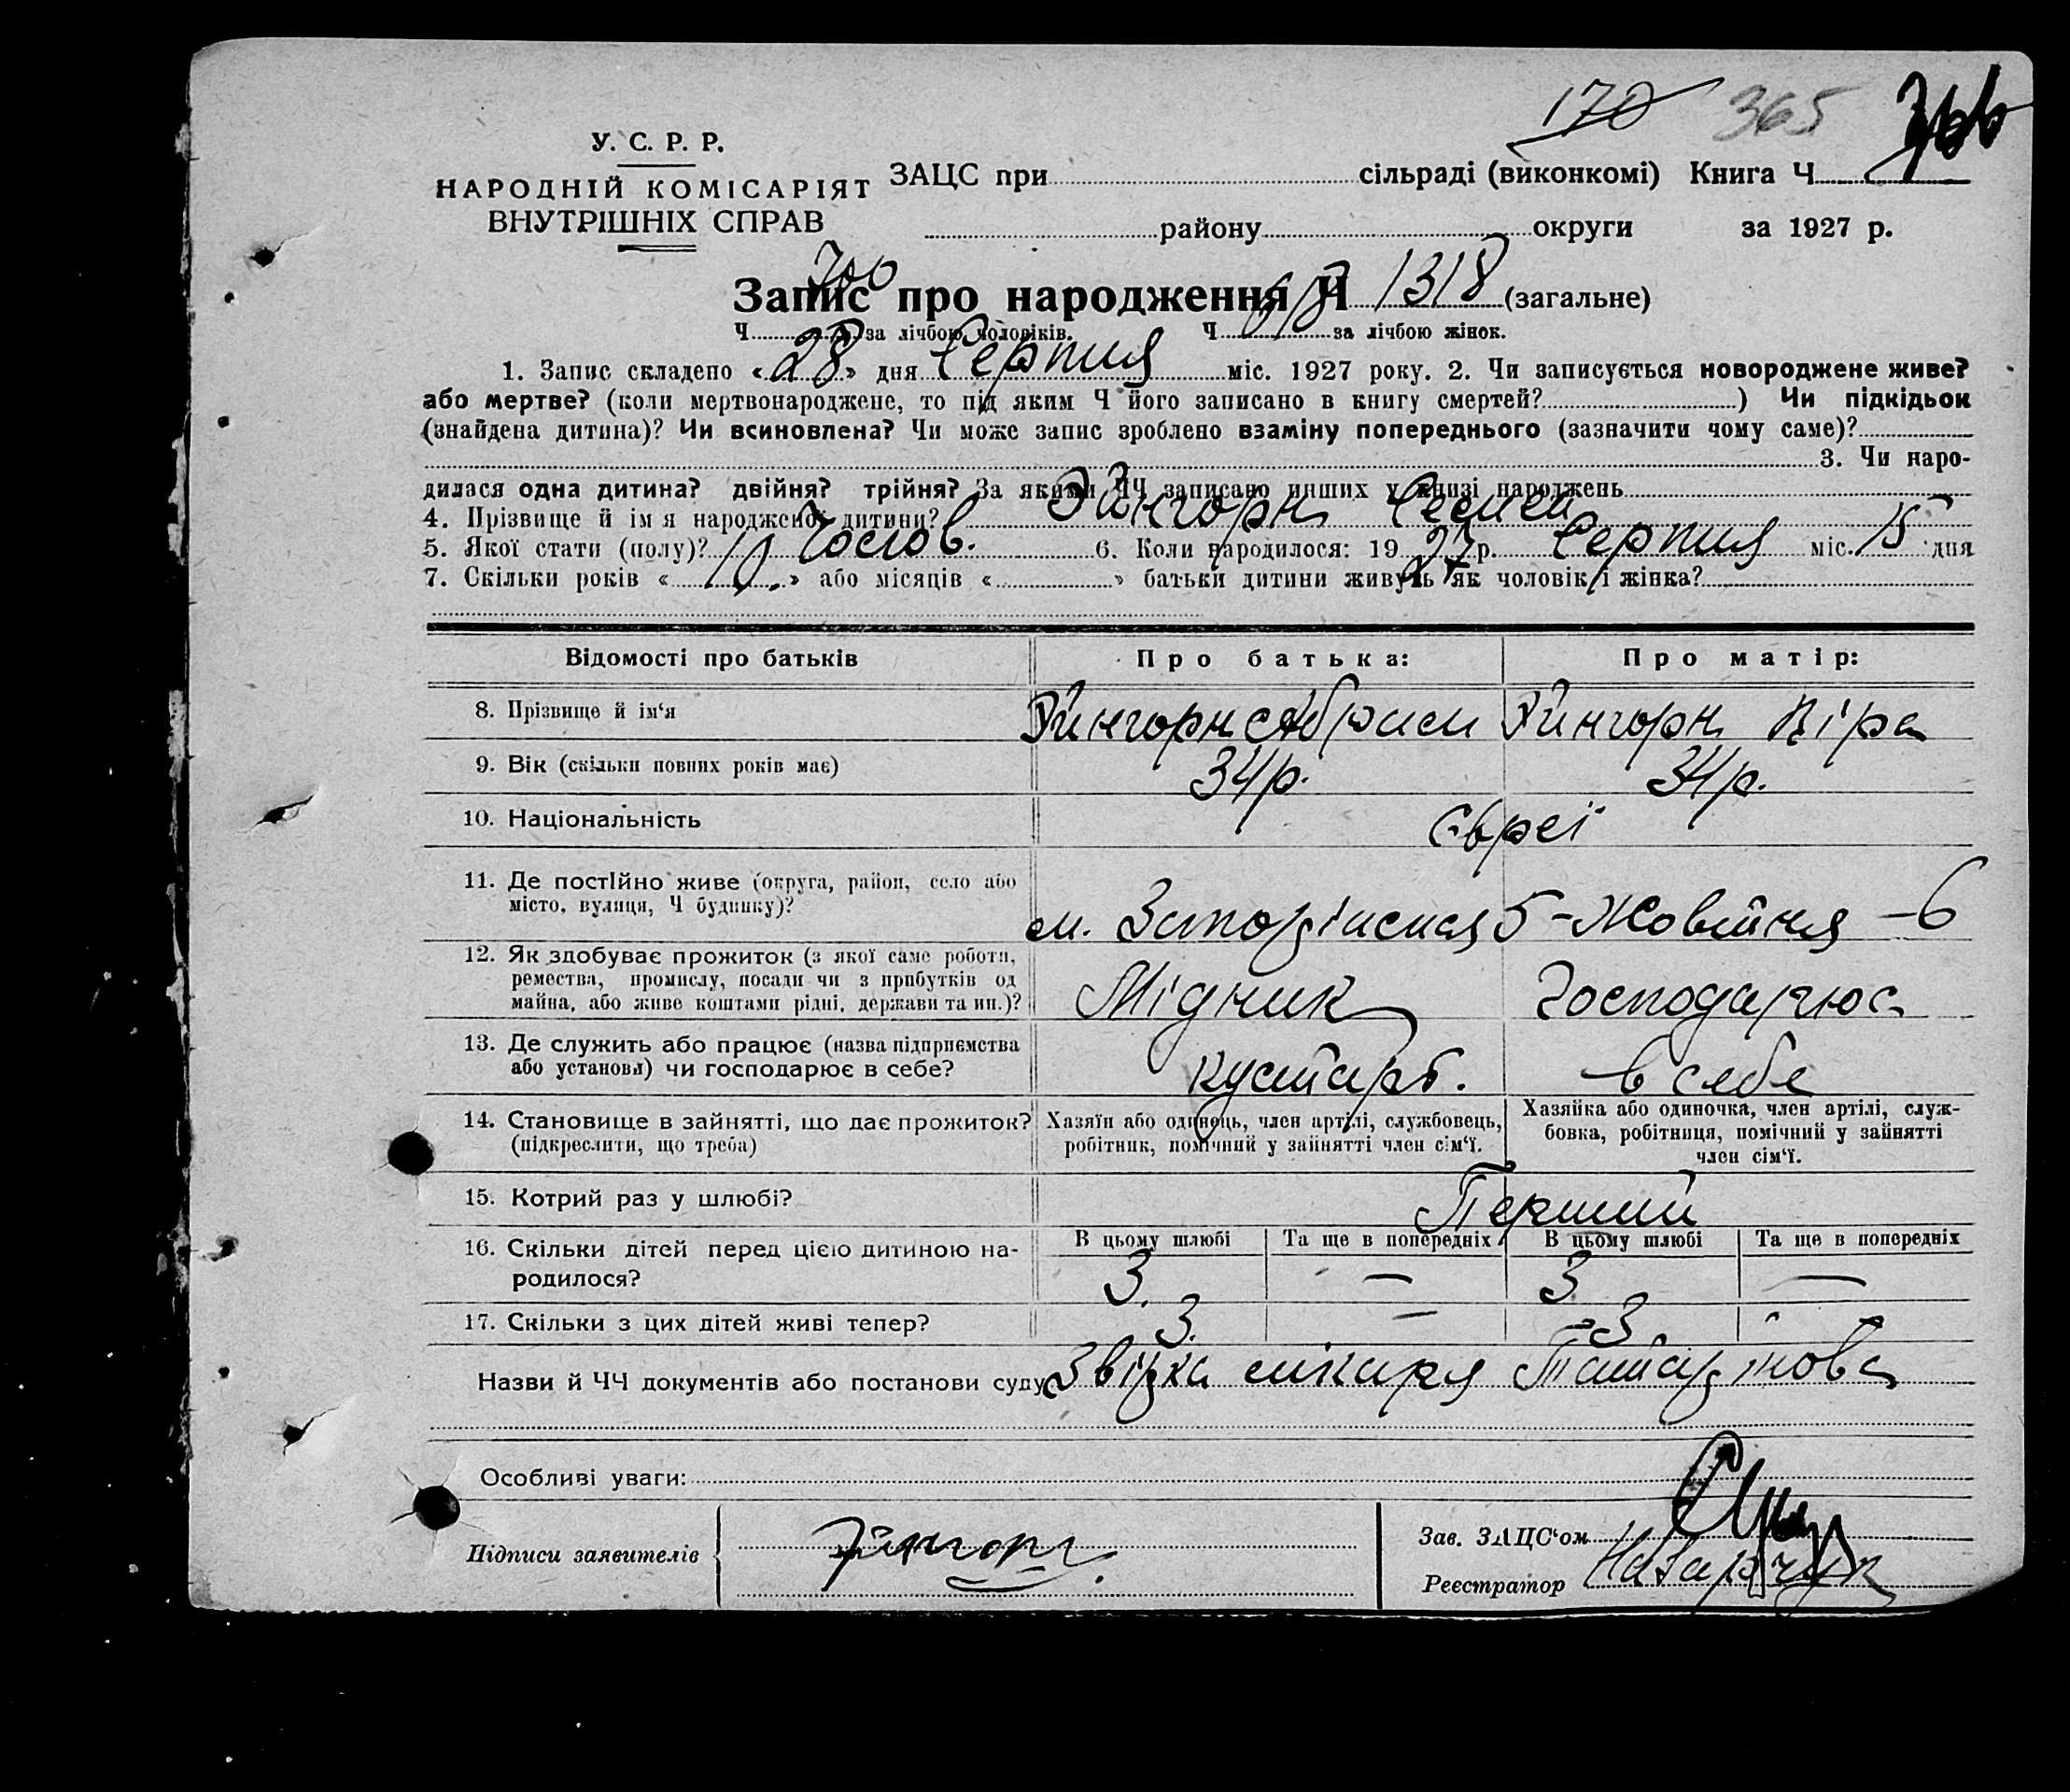 170 365 366
У. С. Р. Р.
НАРОДНІЙ КОМІСАРІЯТ
ВНУТРІШНІХ СПРАВ
ЗАЦС при сільраді (виконкомі) Книга Ч
району округи за 1927 р.
Запис про народження Ч 1318 (загальне)
Ч. 700 за лічбою чоловіків. Ч. 618 за лічбою жінок.
1. Запис складено «28» дня Серпня міс. 1927 року. 2. Чи записується новороджене живе?
або мертве? (коли мертвонароджене, то під яким Ч його записано в книгу смертей?) Чи підкідьок
(знайдена дитина)? Чи всиновлена? Чи може запис зроблено взаміну попереднього (зазначити чому саме)?
3. Чи наро-
дилася одна дитина? двійня? трійня? За якими ЧЧ записано инших у книзі народжень
4. Прізвище й ім я народженої дитини? Эйнгорн
5. Якої стати (полу)? Чолов. 6. Коли народилося: 1927 р. Серпня міс. 15 дня
7. Скільки років «10.» або місяців « » батьки дитини живуть як чоловік і жінка?
Відомості про батьків Про батька: Про матір:
8. Прізвище й ім‘я Эйнгорн Абрам Эйнгорн Піра
9. Вік (скільки повних років має) 34 р. 34 р.
10. Національність Євреї
11. Де постійно живе (округа, район, село або
місто, вулиця, Ч будинку)? м. Запоріжжя 5-Жовтня - 6
12. Як здобуває прожиток (з якої саме роботи,
ремества, промислу, посади чи з прибутків од
майна, або живе коштами рідні, держави та ин.)? Мідник Господарює
13. Де служить або працює (назва підприємства
або установи) чи господарює в себе? кустарь. в себе
14. Становище в зайнятті, що дає прожиток?
(підкреслити, що треба)
Хазяїн або одинець, член артілі, службовець,
робітник, помічний у зайнятті член сім‘ї.
Хазяйка або одиночка, член артілі, служ-
бовка, робітниця, помічний у зайнятті
член сім‘ї.
15. Котрий раз у шлюбі? Перший
16. Скільки дітей перед цією дитиною на-
родилося?
В цьому шлюбі Та ще в попередніх В цьому шлюбі Та ще в попередніх
3. — 3 —
17. Скільки з цих дітей живі тепер? 3. — 3 —
Назви й ЧЧ документів або постанови суду Звізка лікаря
Особливі уваги:
Підписи заявителів Эйнгорн
Зав. ЗАЦС‘ом
Реєстратор Назарчук